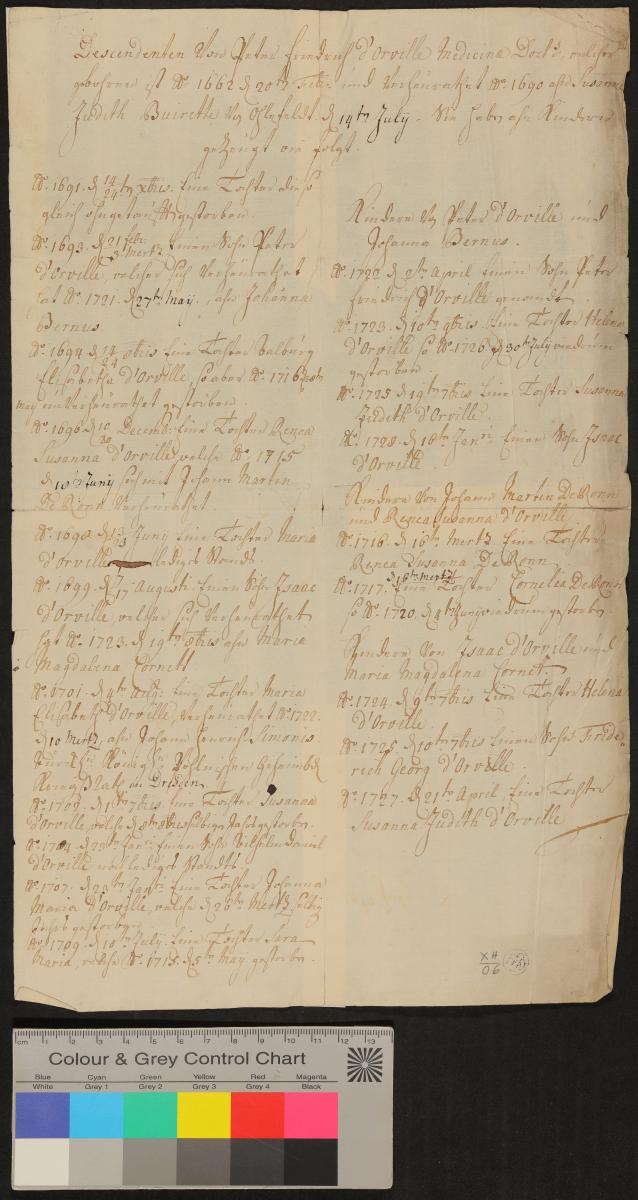 Descendenten Von Peter Friedrich d'Orville Medicina Doct., welcher
gebohren ist Ao 1662 d 20ten Febr. und Verheurathet Ao 1690 ahn Susanna
Judith Buirette V. Öhlefeldt d 14ten July. Sie haben ahn Kinderen
gezeugt wie folgt.
Ao. 1691. d 14/24 ten Xbris. Eine Tochter diese
gleich ohngetaufft gestorben.
Ao. 1693. d 21 febr./3 Mertz Einen Sohn Peter
d'Orville, welcher sich Verheurathet
hat Ao 1721. d 27ten May, ahn Johanna
Bernus.
Ao. 1694 d 14/24 8bris Eine Tochter Walburg
Elisabetha d'Orville, so aber Ao 1716
May unVerheurathet gestorben.
Ao. 1696 d 10/20 Decemb: Eine Tochter Renea
Susanna d'Orville welche Ao 1715
d 18ten Juny sich mit Johann Martin
De Ronn Verheurathet
Ao. 1698. d 13/23 Juny Eine Tochter Maria
d'Orville ledigen Stands.
Ao. 1699. d 7/17 Augusti. Einen Sohn Isaac
d'Orville, welcher sich Verheurathet
hat Ao. 1723. d 19ten 8bris ahn Maria
Magdalena Cornett
Ao. 1701. d 4ten Aug: Eine Tochter Maria
Elisabeth d'Orville, Verheurathet Ao 1722.
d 10 Mertz, ahn Johann Henrich Simonis
Königl. Pohlnischen Geheimbd
in Dresden.
Ao. 1702. d 1 7bris Eine Tochter Susanna
d'Orville, welche d 8ten 8bris selbigen Jahrs gestorben.
Ao. 1704. d 29ten Jan: Einen Sohn Wilhelm Daniel
d'Orville noch ledigen Standts
Ao. 1707. d 23ten Jan: Eine Tochter Johanna
Maria d'Orville, welche d 26ten Mertz selbig
Jahrs gestorben
Ao 1709. d 18ten July. Eine Tochter Sara
Maria, welche Ao. 1715. d 5ten May gestorben.
Kindere V. Peter d'Orville und
Johanna Bernus.
Ao. 1722 d 2ten April Einen Sohn Peter
Friedrich d'Orville genandt
Ao. 1723. d 10ten 9bris. Eine Tochter Helena
d'Orville so Ao 1726. d 30ten July wiederum
gestorben.
Ao. 1725 d 19ten 7bris Eine Tochter Susanna
Judith d'Orville.
Ao. 1728. d 18ten Jan. Einen Sohn Isaac
d'Orville.
Kindere Von Johann Martin De Ronn
und Renea Susanna d'Orville
Ao. 1716. d 16ten Mertz. Eine Tochter
Renea Susanna De Ronn.
d 18ten Mertz
Ao. 1717. Eine Tochter Cornelia De Ronn
so Ao 1720. d 4ten wiederum gestorben.
Kindere Von Isaac d'Orville und
Maria Magdalena Cornet.
Ao. 1724. d 9ten 7bris Eine Tochter Helena
d'Orville
Ao. 1725. d 10ten 7bris Einen Sohn Fride=
rich Georg d'Orville.
Ao. 1727. d 21ten April. Eine Tochter
Susanna Judith d'Orville
XH
90
cm 1 2 3 4 5 6 7 8 9 10 11 12 13
Colour & Grey Control Chart
Blue Cyan Green Yellow Red Magenta
White Grey 1 Grey 2 Grey 3 Grey 4 Black